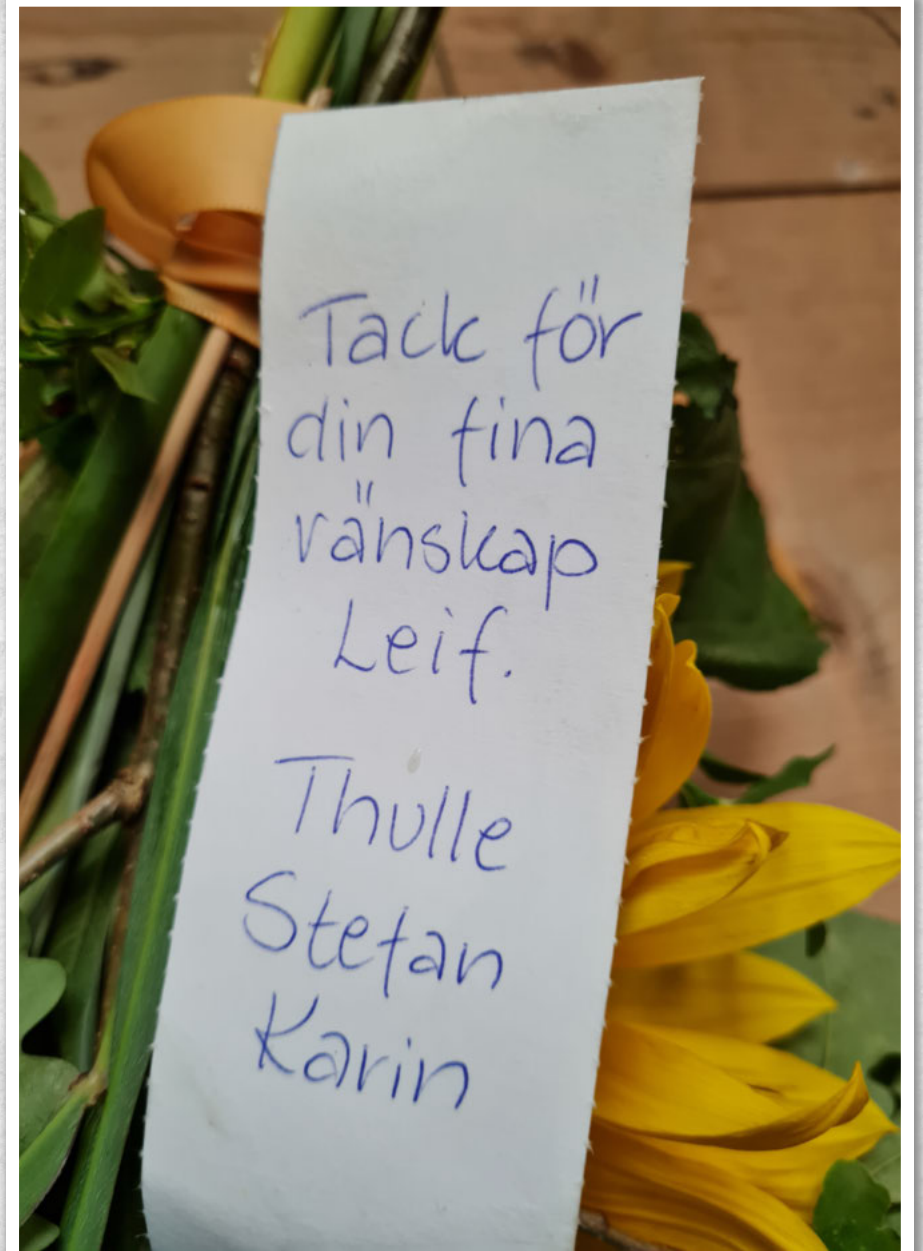 Tack för
din fina
vänskap
Leif.
Thulle
Stefan
Karin